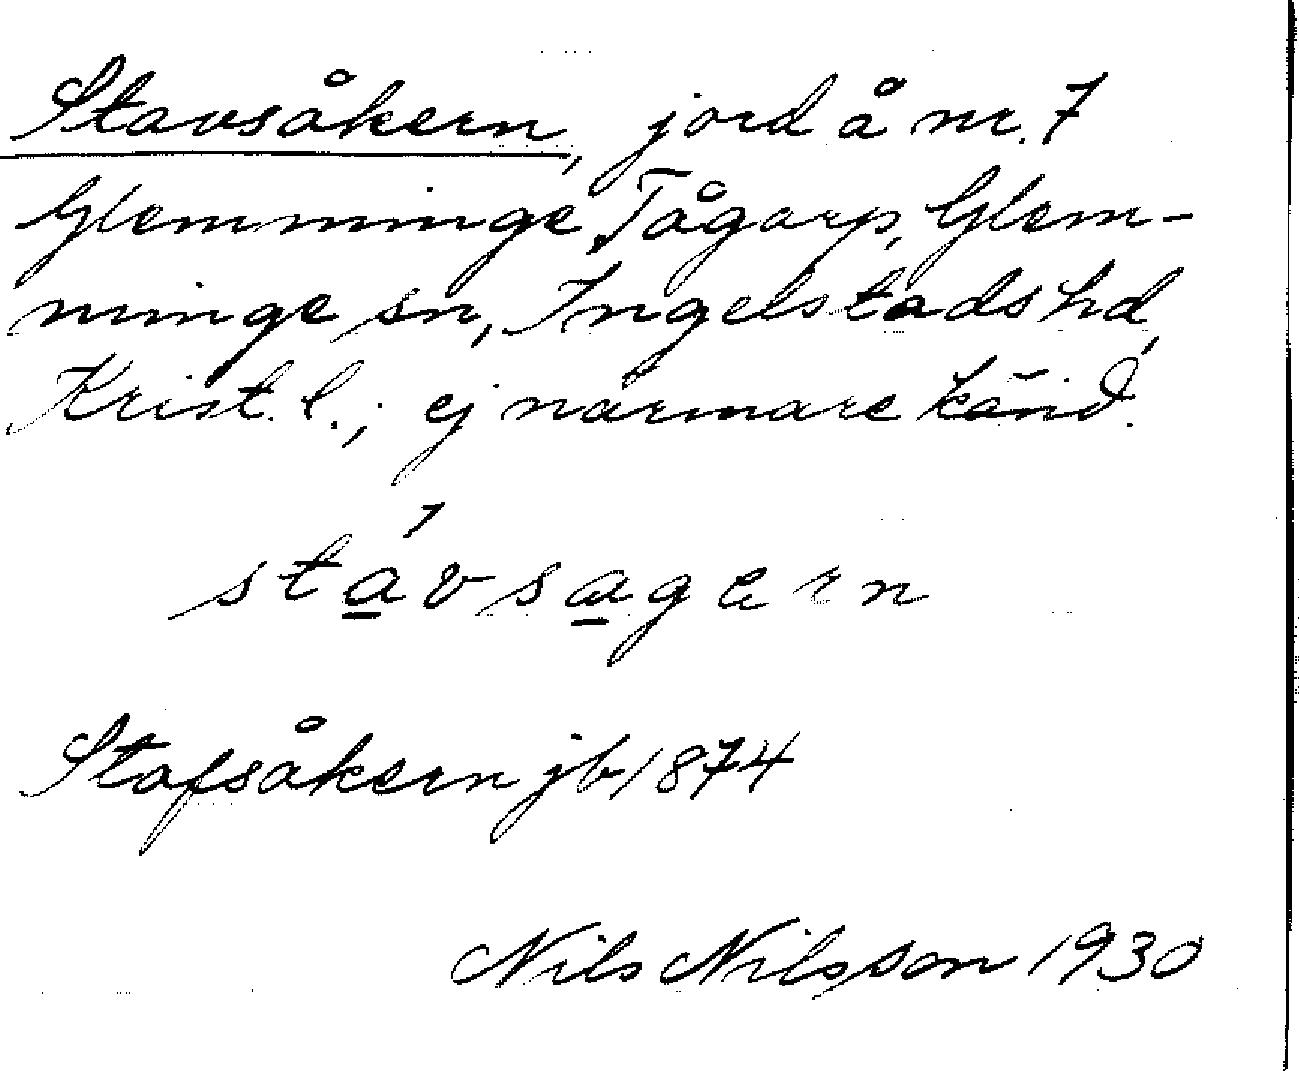 Stavsåkern, jord å nr. 7
Glemminge, Tågarp, Glem-
minge sn, Ingelstads hd,
Krist. l.; ej närmare känd.
sta̲´vsa̲gern
Stafsåkern jb 1874
Nils Nilsson 1930